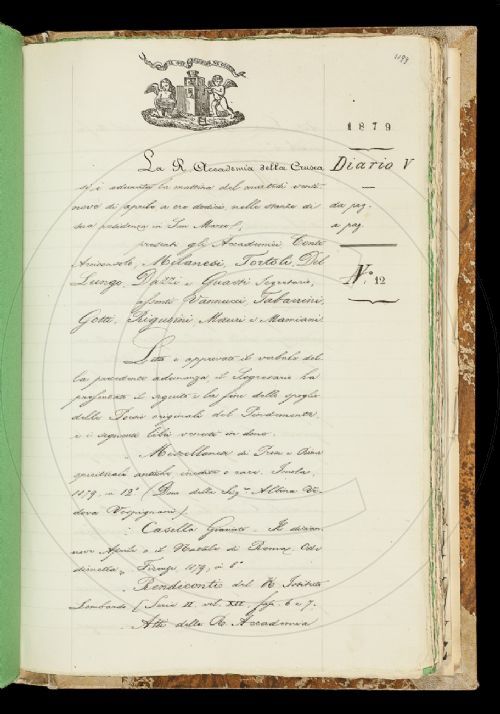 1193
1879
Diario V
da pag.
a pag.
N.° 12
La R. Accademia della Crusca
si è adunata la mattina del martedì venti-
nove di aprile a ore dodici, nelle stanze di
sua residenza in San Marco,
presenti gli Accademici Conti
Arciconsolo, Milanesi, Tortoli, Del
Lungo, Dazzi e Guasti Segretario,
assenti Vannucci, Tabarrini,
Gotti, Rigutini, Mauri e Mamiani
Letto e approvato il verbale del-
la precedente adunanza il Segretario ha
presentato il seguito e la fine dello spoglio
delle Poesie originali del Pindemonte,
e i seguenti libri venuti in dono.
Miscellanea di Prose e Rime
spirituali antiche inedite o rare. Imola,
1879, in 12° (Dono della Sig.ra Albina Ve-
dova Vespignani)
Casella Giacinto - Il dician-
nove Aprile o il Natale di Roma, Ode
Firenze, 1879, in 8°
Rendiconti del R. Istituto
Lombardo (Serie II. vol. XII. fasc. 6 e 7.
Atti della R. Accademia